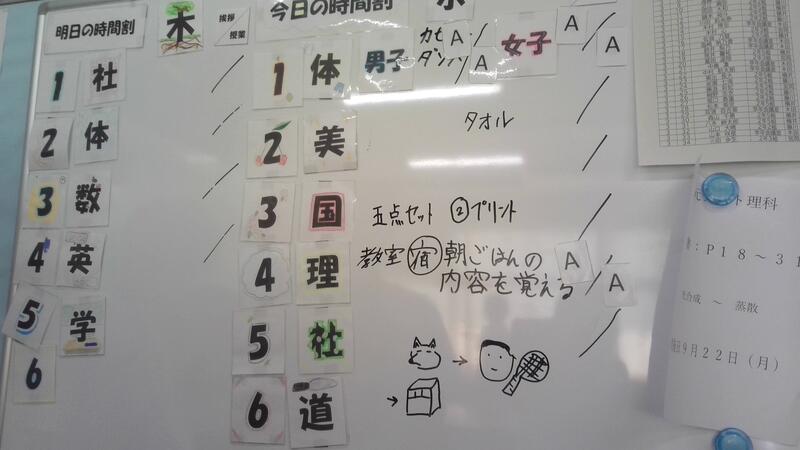 明日の時間割
木
挨拶
授業
今日の時間割
1 社
2 体
3 数
4 英
5 学
6
1 体 男子 A A 女子 A A
2 美 タオル
3 国 五点セット ②プリント
4 理 教室 宿 朝ごはんの A A
内容を覚える
5 社
6 道
理科
:P18~31
~ 蒸散
9月22日(月)